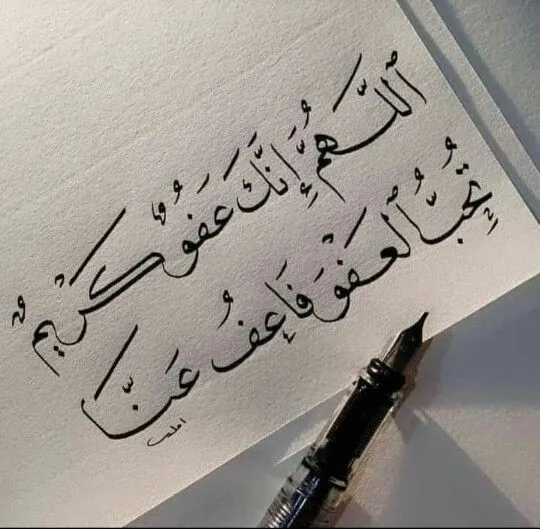 ٱللَّهُمَّ إِنَّكَ عَفُوٌّ كَرِيمٌ
تُحِبُّ ٱلْعَفْوَ فَاعْفُ عَنَّا